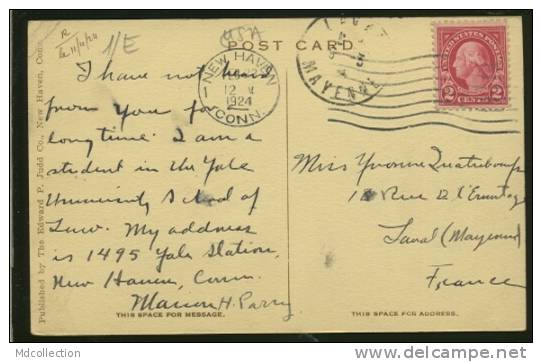 USA
R
1/E
POST CARD
NEW HAVEN
12
1924
CONN.
LAVAL
MAYENNE
UNITED STATES POSTAGE
2 CENTS 2
Published by The Edward P. Judd Co., New Haven, Conn.
I have not heard
from you for
long time. I am a
student in the Yale
University School of
Law. My address
is 1495 Yale Station,
New Haven, Conn.
Marion H. Parry
Miss Yvonne
18 Rue de l'Ermitage
Laval (Mayenne)
France
THIS SPACE FOR MESSAGE.
THIS SPACE FOR ADDRESS.
Mdcollection
www.delcampe.net